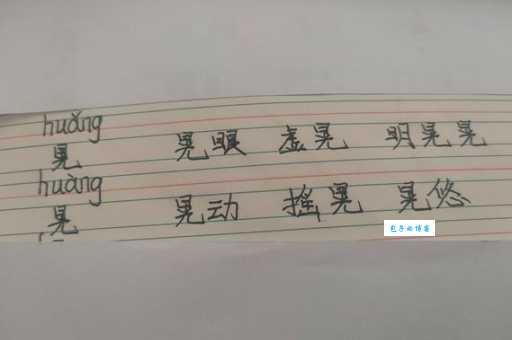 huǎng
晃 晃眼 虚晃 明晃晃
huàng
晃 晃动 摇晃 晃悠
包子的博客